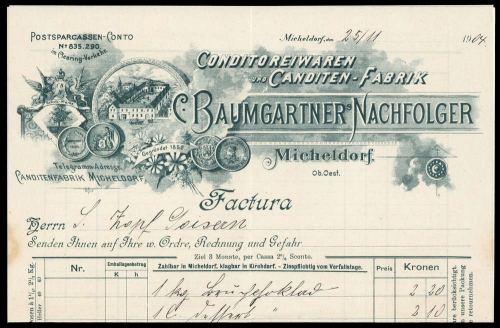 POSTSPARCASSEN-CONTO
No 835.290.
in Clearing-Verkehr.
Micheldorf, den 25/11 1904.
CONDITOREIWAREN
UND CANDITEN-FABRIK
C. BAUMGARTNERS NACHFOLGER
Gegründet 1852
Micheldorf.
Ob. Oest.
Telegramm-Adresse:
CANDITENFABRIK MICHELDORF.
Factura
Herrn S. Zopf Goisern
Senden Ihnen auf Ihre w. Ordre, Rechnung und Gefahr
Ziel 3 Monate, per Cassa 2% Sconto.
Nr. Emballagenbetrag Zahlbar in Micheldorf, klagbar in Kirchdorf. – Zinspflichtig vom Verfallstage. Preis Kronen
K h
1 kg Bruchschoklad 2 20
1 2 10